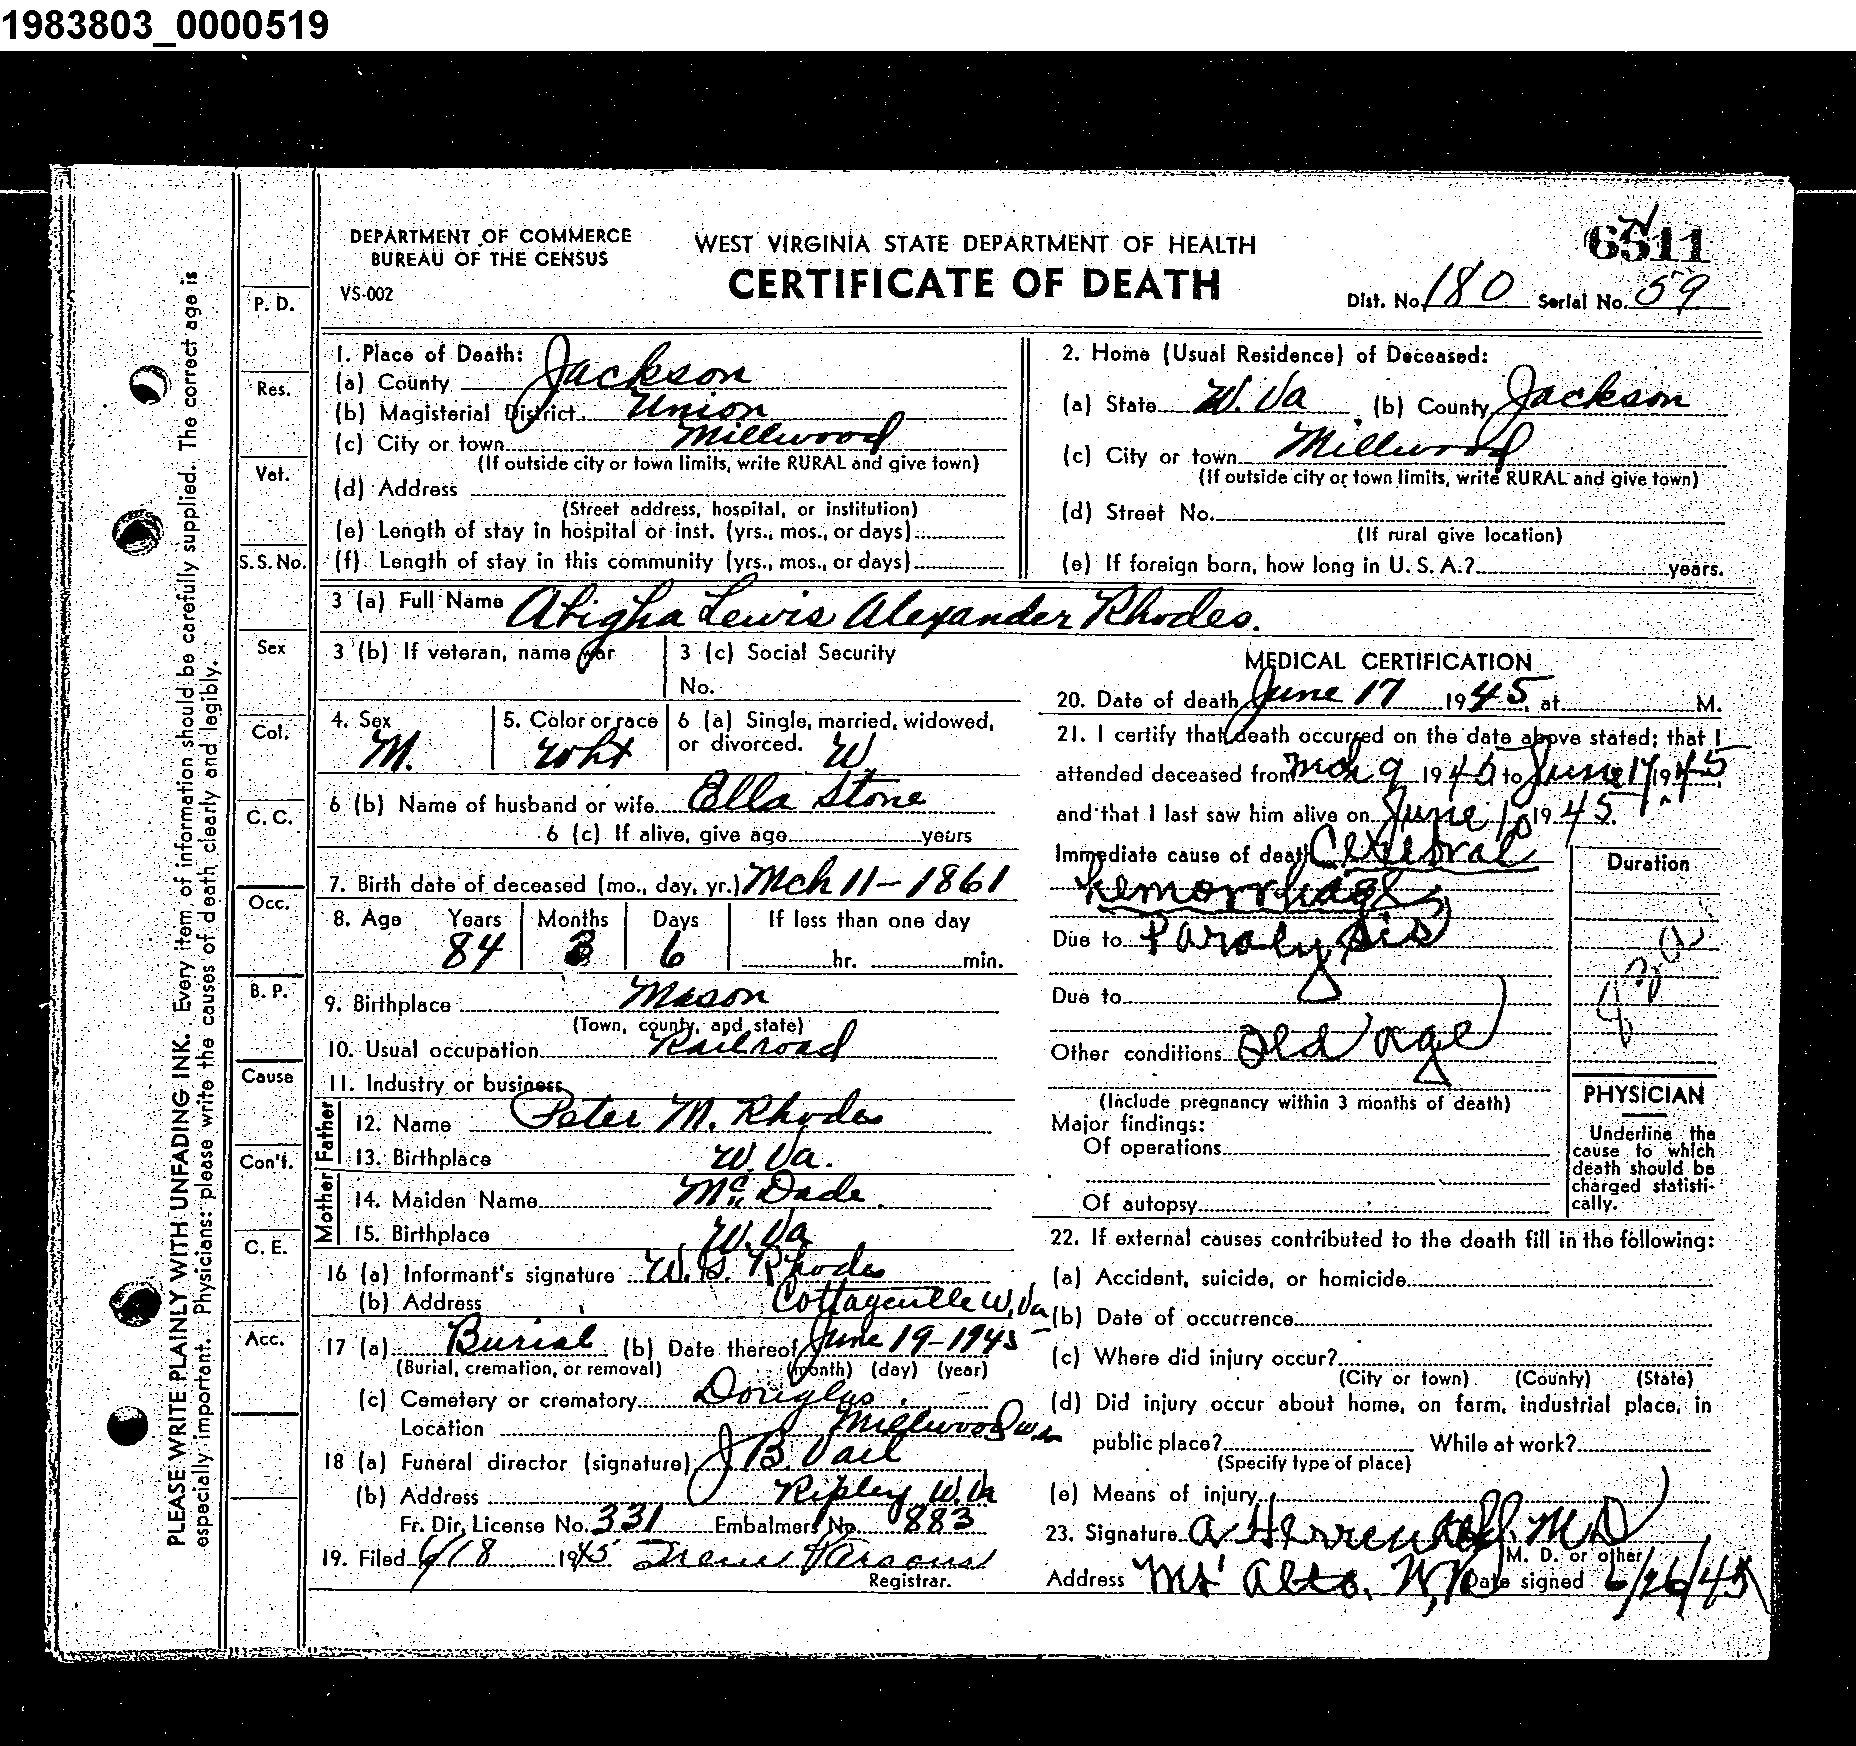 1983803_0000519
DEPARTMENT OF COMMERCE
BUREAU OF THE CENSUS
VS-002
WEST VIRGINIA STATE DEPARTMENT OF HEALTH
CERTIFICATE OF DEATH
6511
Dist. No. 180 Serial No. 59
PLEASE WRITE PLAINLY WITH UNFADING INK. Every item of information should be carefully supplied. The correct age is
especially important. Physicians: please write the causes of death clearly and legibly.
P. D.
Res.
Vet.
S. S. No.
Sex
Col.
C. C.
Occ.
B. P.
Cause
Con't.
C. E.
Acc.
1. Place of Death:
(a) County Jackson
(b) Magisterial District Union
(c) City or town Millwood
(If outside city or town limits, write RURAL and give town)
(d) Address
(Street address, hospital, or institution)
(e) Length of stay in hospital or inst. (yrs., mos., or days)
(f) Length of stay in this community (yrs., mos., or days)
2. Home (Usual Residence) of Deceased:
(a) State W. Va (b) County Jackson
(c) City or town Millwood
(If outside city or town limits, write RURAL and give town)
(d) Street No.
(If rural give location)
(e) If foreign born, how long in U. S. A.? years.
3 (a) Full Name Abigha Lewis Alexander Rhodes.
3 (b) If veteran, name war
3 (c) Social Security
No.
4. Sex M.
5. Color or race Wht
6 (a) Single, married, widowed,
or divorced. W
6 (b) Name of husband or wife Ella Stone
6 (c) If alive, give age years
7. Birth date of deceased (mo., day, yr.) Mch 11 - 1861
8. Age Years Months Days If less than one day
84 3 6 hr. min.
9. Birthplace Mason
(Town, county, and state)
10. Usual occupation Railroad
11. Industry or business
Father
12. Name Peter M. Rhodes
13. Birthplace W. Va.
Mother
14. Maiden Name McDade.
15. Birthplace W. Va
16 (a) Informant's signature W. B. Rhodes
(b) Address Cottageville W. Va
17 (a) Burial (b) Date thereof June 19-1945
(Burial, cremation, or removal) (month) (day) (year)
(c) Cemetery or crematory Douglas
Location Millwood W. Va
18 (a) Funeral director (signature) J B. Vail
(b) Address Ripley W. Va
Fr. Dir. License No. 331 Embalmers No. 883
19. Filed 6/18 1945 Parsons
Registrar.
MEDICAL CERTIFICATION
20. Date of death June 17 1945 at M.
21. I certify that death occurred on the date above stated; that I
attended deceased from Mch 9 1945 to June 17 1945
and that I last saw him alive on June 1945.
Immediate cause of death Cerebral
hemorrhage
Due to Paralysis
Due to
Other conditions Old age
(Include pregnancy within 3 months of death)
Major findings:
Of operations
Of autopsy
Duration
PHYSICIAN
Underline the
cause to which
death should be
charged statisti-
cally.
22. If external causes contributed to the death fill in the following:
(a) Accident, suicide, or homicide
(b) Date of occurrence
(c) Where did injury occur?
(City or town) (County) (State)
(d) Did injury occur about home, on farm, industrial place, in
public place? While at work?
(Specify type of place)
(e) Means of injury
23. Signature M D
M. D. or other
Address Mt Alto, W, V Date signed 6/26/45